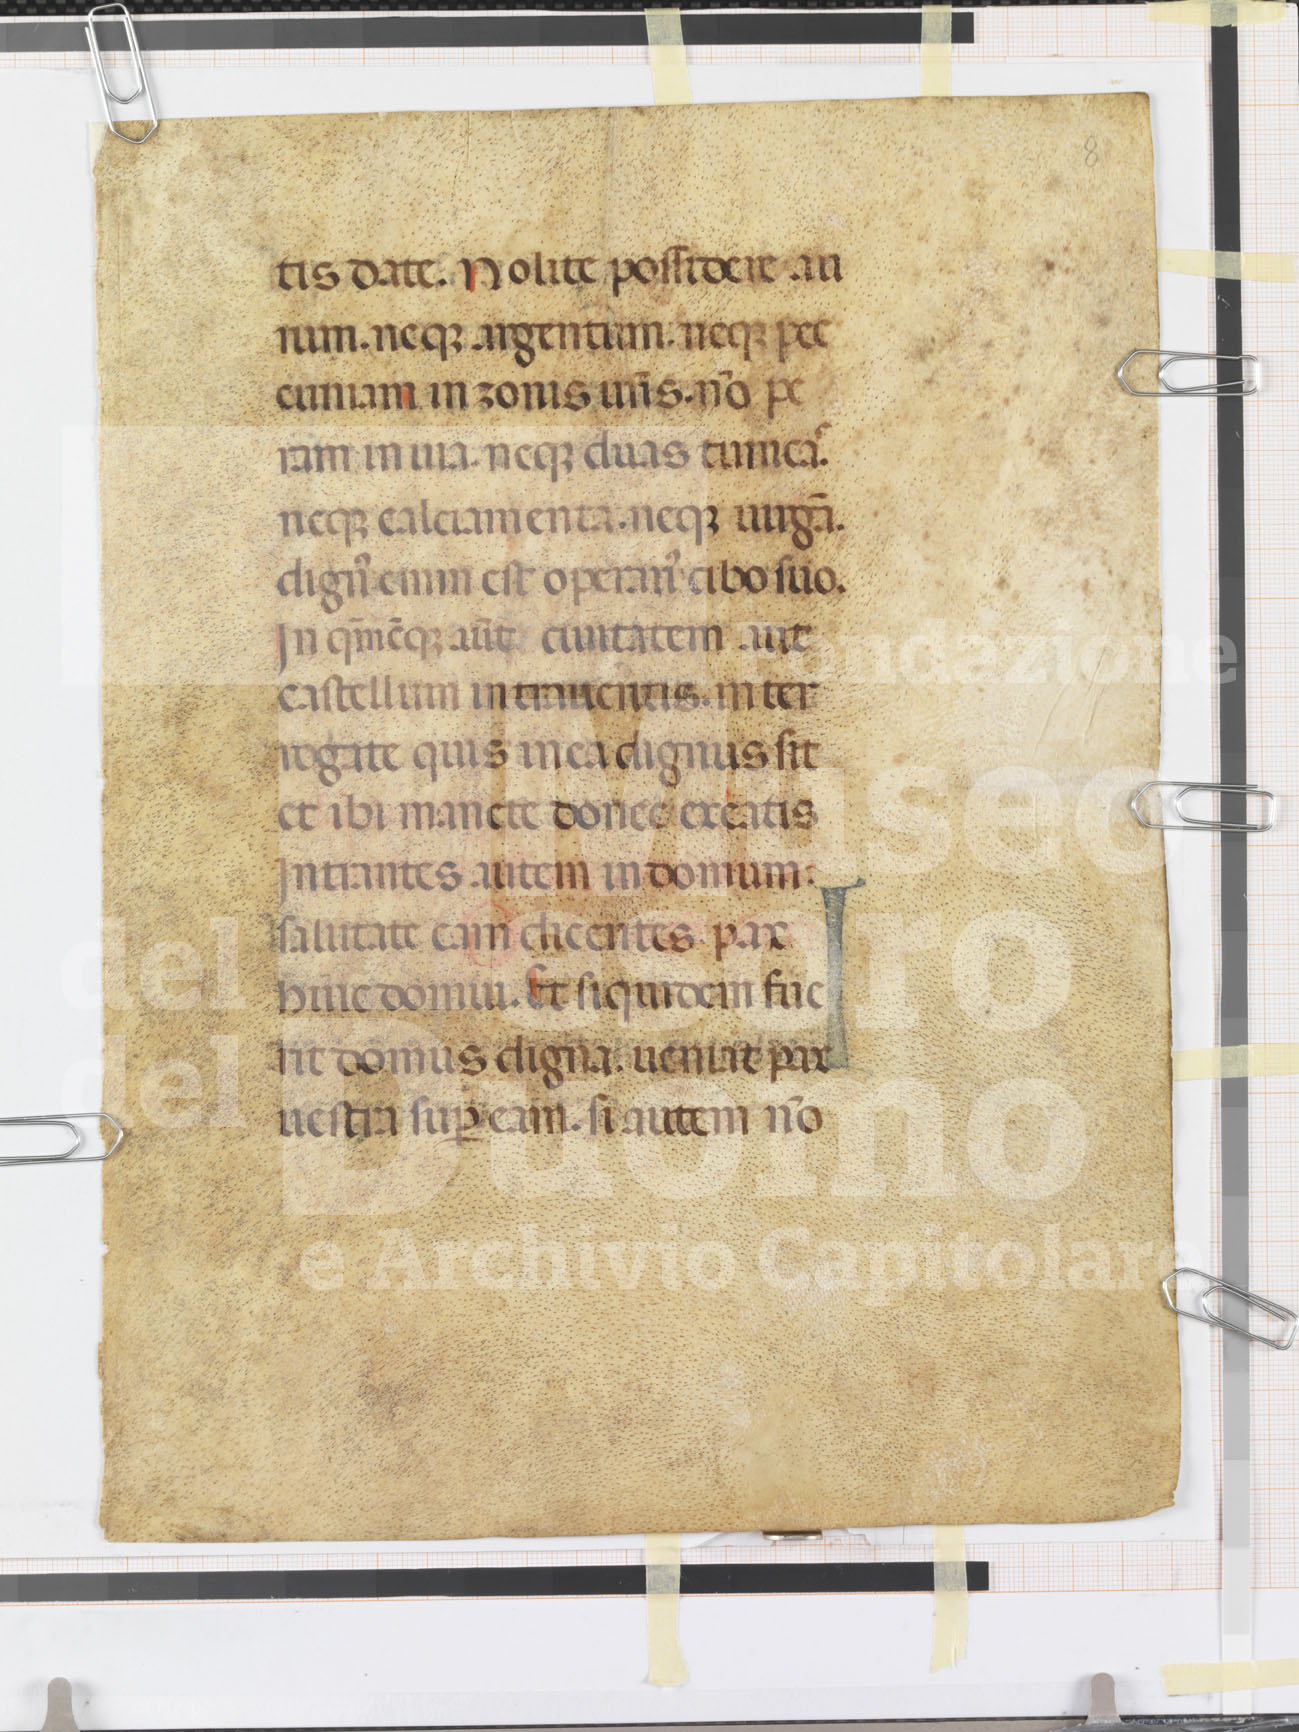 8
tis date. Nolite possidere au
rum. neqꝫ argentum. neqꝫ pec
cuniam in zonis ur̄is. nō pe
ram in uia. neqꝫ duas tunicaˢ.
neqꝫ calciamenta. neqꝫ uirgā.
dignꝰ enim est operariꝰ cibo suo.
In qm̄cūqꝫ aūt ciuitatem aut
castellum intraueritis. inter
rogate quis in ea dignus sit
et ibi manete donec exeatis
Intrantes autem in domum:
salutate eam dicentes. pax
huic domui. Et siquidem fue
rit domus digna. ueniat pax
uestra suꝑ eam. si autem nō
Fondazione
Museo
del Tesoro
del Duomo
e Archivio Capitolare